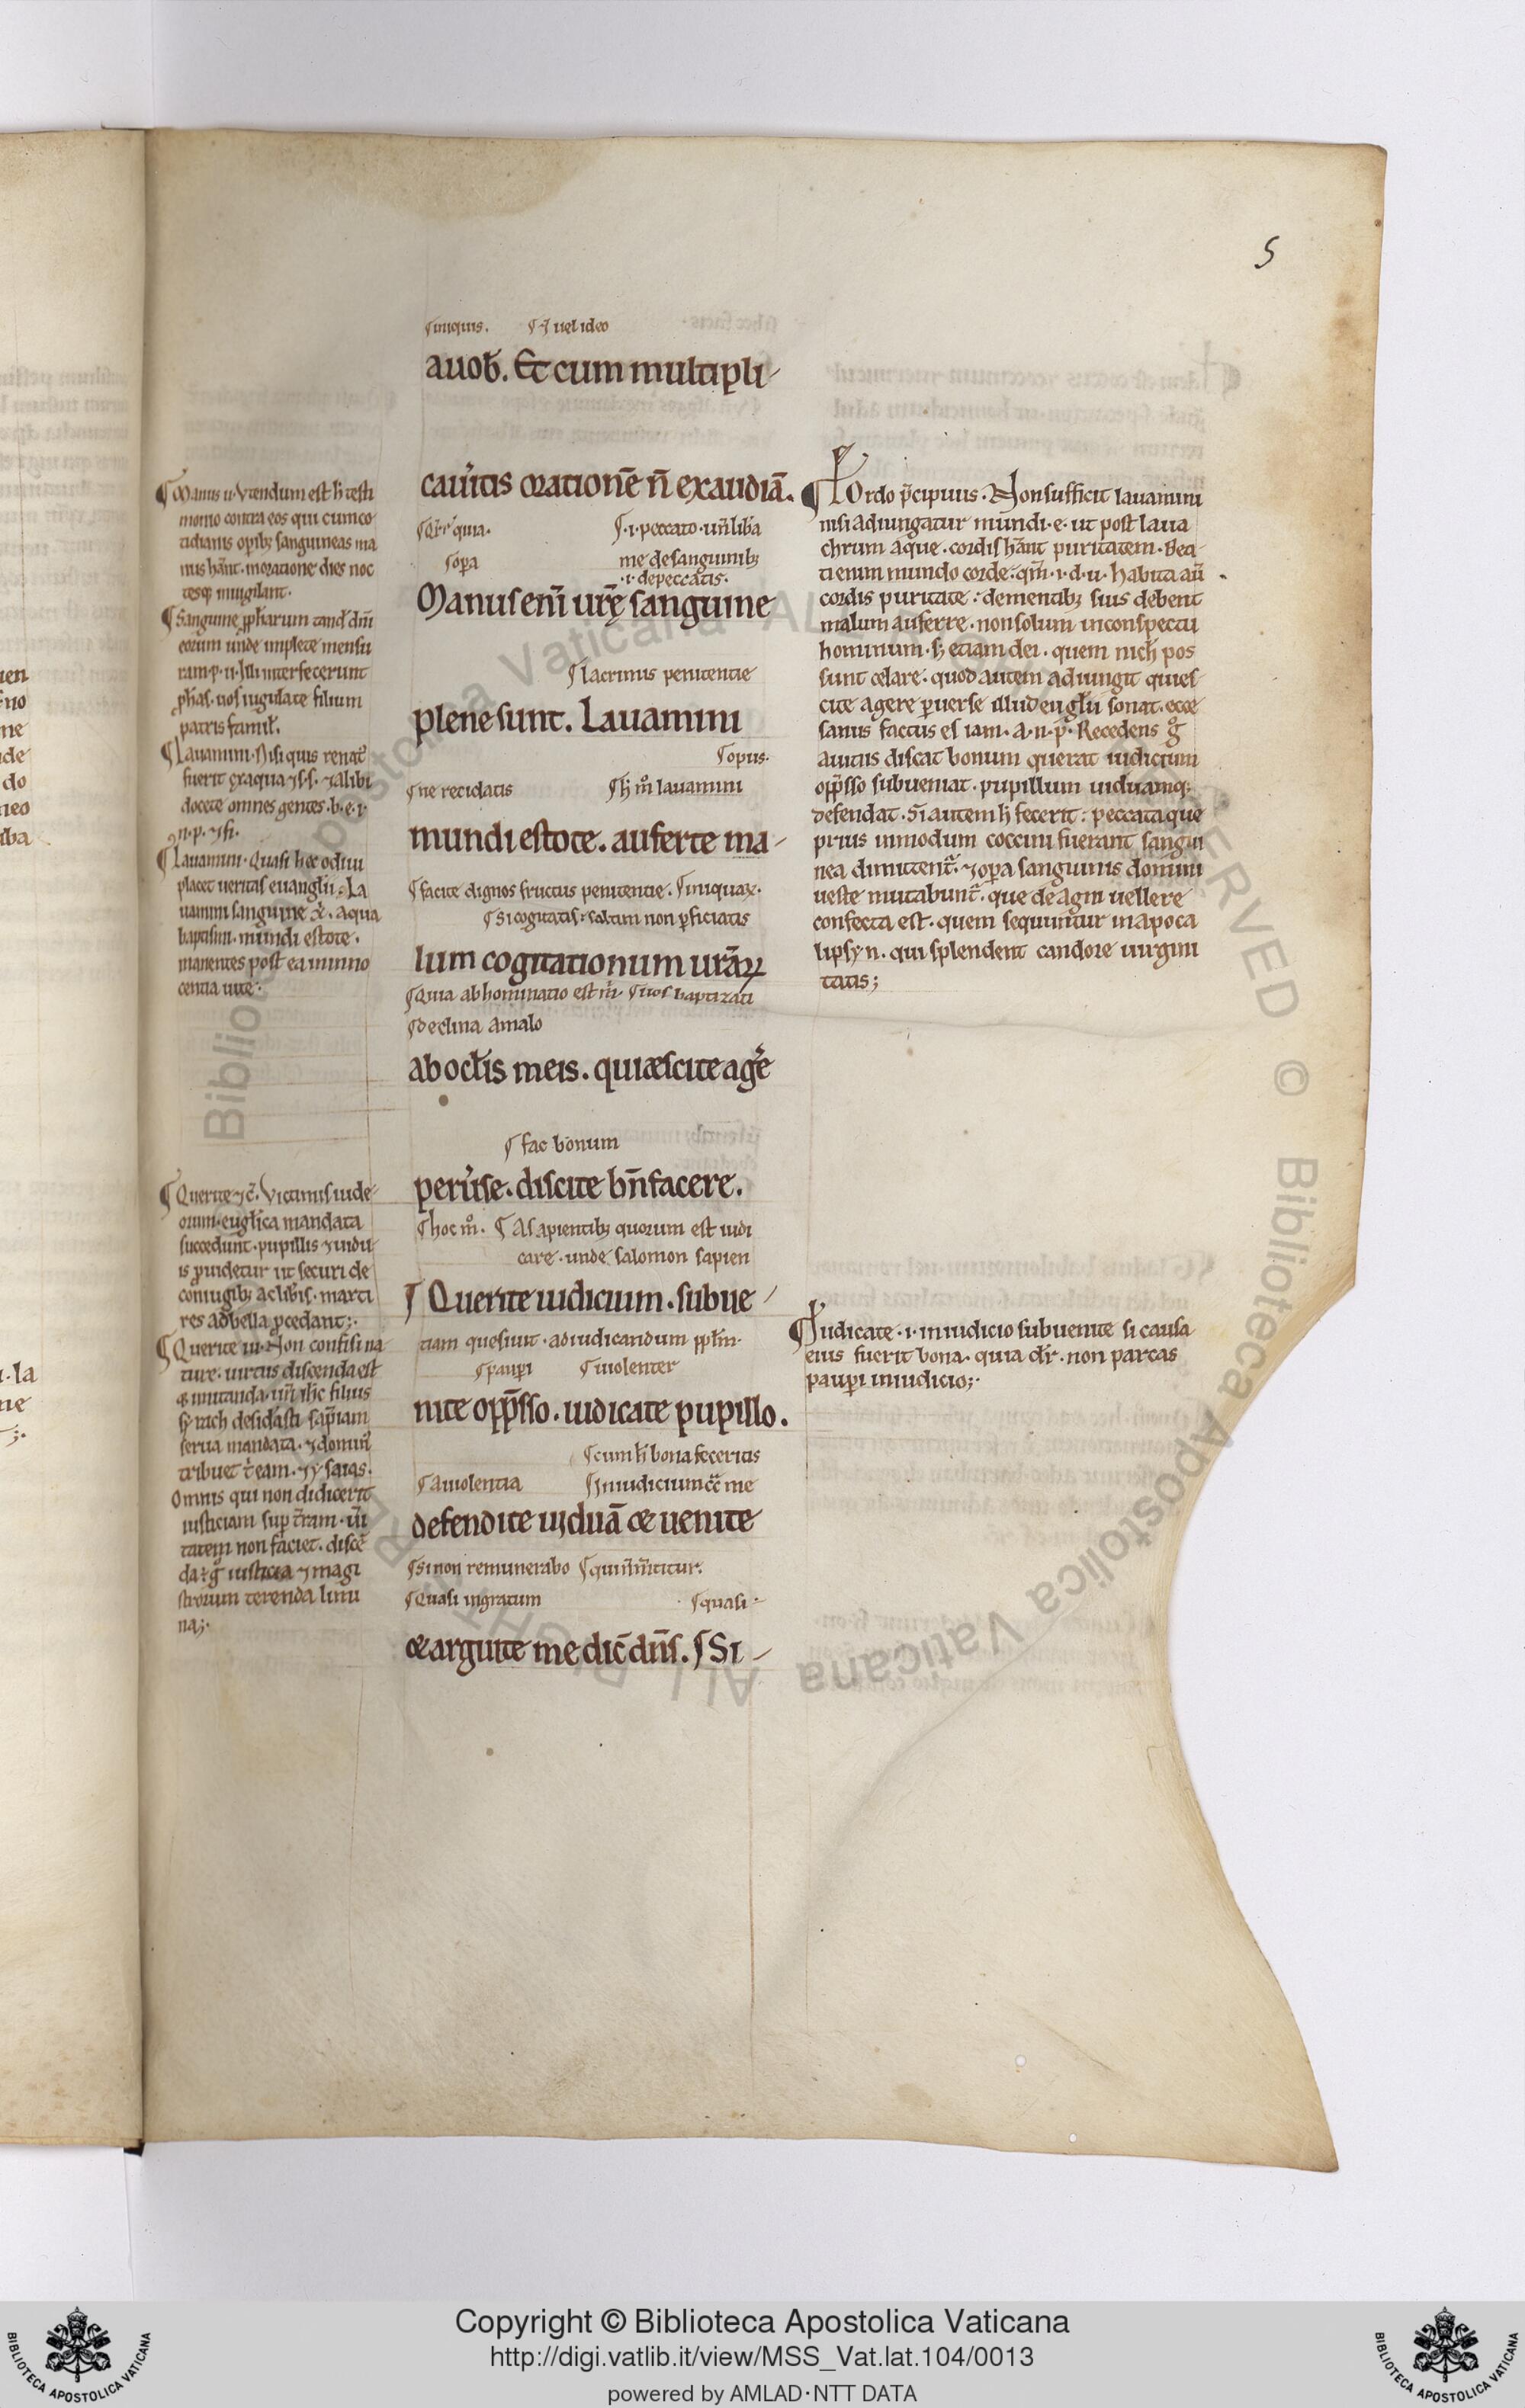 5
¶iniquis. ¶ vel ideo
a uob̄. Et cum multipli-
cau̓itis orationē n̄ exaudiā.
¶ quia. ¶.i. peccato. un̄ liba
sopa me de sanguinibꝫ
.i. de peccatis.
Manus eni̅ ur̄ę sanguine
¶lacrimis penitentie
plene sunt. Lauamini
¶opus.
¶ne recidatis ¶h̄ mº lauamini
mundi estote. auferte ma-
¶facite dignos fructus penitentie. ¶iniquaꝝ.
¶si cogitatis: saltim non ꝑficiatis
lum cogitationum urāꝝ
¶Quia abhominatio est m̄. ¶uos baptizati
¶declina a malo
ab oclīs meis. quiæscite age̓
¶fac bonum
peru̓se. discite bn̄facere.
¶hoc mº. ¶A sapientibꝫ quorum est iudi
care. unde salomon sapien
¶ Querite iudicium. subue-
tiam quesiuit. ad iudicandum ppl̄m.
¶pauꝑi ¶uiolenter
nite opp̄sso. iudicate pupillo.
¶cum h̄ bona feceritis
¶a uiolentia ¶in iudicium me
defendite uiduā & uenite
¶si non remunerabo
¶Quasi ingratum ¶quasi
& arguite me dic̄ dn̄s. ¶Si-
¶Manus u. Vtendum est h̄ testi
monio contra eos qui cum co
tidianis opibꝫ sanguineas ma
nus hānt. in oratione dies noc
tesqꝫ inuigilant.
¶Sanguine ꝓphetarum
eorum unde implete mensu
ram.p.u. Illi interfecerunt
ꝓphas. uos iugulate filium
patris famil̄.
¶Lauamini. Nisi quis renat᷒
fuerit ex aqua ⁊ s.s. ⁊ alibi
docete omnes gentes. b.e.i.
n.p. ⁊ fi.
¶Lauamini. Quasi hec odiui
placet ueritas euanglii. La
uamini sanguine aqua
baptismi. mundi estote.
manentes post ea in inno
centia uite.
¶Querite ⁊c̄. Victimis iude
orum. euglica mandata
succedunt. pupillis ⁊ uidu
is ꝓuidetur ut securi de
coniugibꝫ ac libis. marti
res ad bella ꝓcedant;.
¶Querite iu. Non confisi na
ture. uirtus discenda est
filius
syrach desidasti sapīam
serua mandata. ⁊ domin᷒
tribuet eam. ⁊ ysaias.
Omnis qui non didicerit
iusticiam suꝑ tr̄am. ui̅
tatem non faciet. discē
da g̊ iusticia ⁊ magi
strorum terenda limi
na;.
¶Ordo p̄cipuus. Non sufficit lauamini
nisi adiungatur mundi.e. ut post laua
chrum aque. cordis hānt puritatem. Bea
ti enim mundo corde. qm̄.i.d.u. habita aū
cordis puritate: de mentibꝫ suis debent
malum auferre. non solum in conspectu
hominum. sꝫ etiam dei. quem nich̄ pos
sunt celare. quod autem adiungit quies
cite agere ꝑuerse illud euglii sonat. ecce
sanus factus es iam.a.n.p. Recedens g̊
a uitiis discat bonum querat iudicium
opp̄sso subueniat. pupillum uiduamqꝫ
defendat. Si autem h̄ fecerit: peccata que
prius in modum coccini fuerant sangui
nea dimittent᷒. ⁊ opa sanguinis domini
ueste mutabunt᷒. que de agni uellere
confecta est. quem sequuntur in apoca
lipsyn. qui splendent candore uirgini
tatis;
¶Iudicate .i. in iudicio subuenite si causa
eius fuerit bona. quia dr̄. non parcas
pauꝑi in iudicio;.
Copyright © Biblioteca Apostolica Vaticana
http://digi.vatlib.it/view/MSS_Vat.lat.104/0013
powered by AMLAD·NTT DATA
BIBLIOTECA APOSTOLICA VATICANA
BIBLIOTECA APOSTOLICA VATICANA